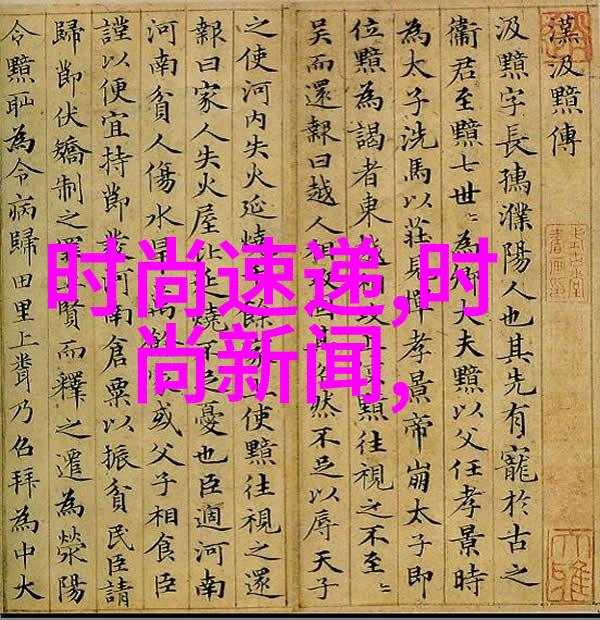 漢汲黯傳
汲黯字長孺濮陽人也其先有寵於古之
衞君至黯七世〻為卿大夫黯以父任孝景時
為太子洗馬以莊見憚孝景帝崩太子即
位黯為謁者東越相攻上使黯往視之不至〻
吳而還報曰越人相攻固其俗然不足以辱天子
之使河內失火延燒千餘家上使黯往視之還
報曰家人失火屋比延燒不足憂也臣適河南
河南貧人傷水旱萬餘家或父子相食臣
謹以便宜持節發河南倉粟以振貧民臣請
歸節伏矯制之罪上賢而釋之遷為滎陽
令黯恥為令病歸田里上聞乃召拜為中大
时尚速递,时
尚新闻,